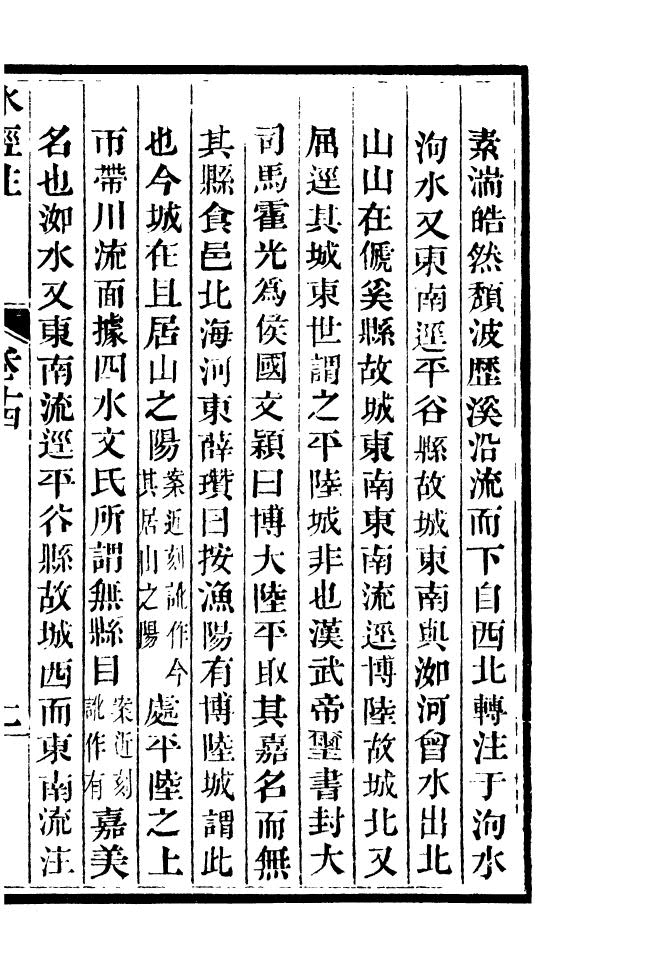 素湍皓然頹波歷溪沿流而下自西北轉注于泃水
泃水又東南逕平谷縣故城東南與洳河會水出北
山山在傂奚縣故城東南東南流逕博陸故城北又
屈逕其城東世謂之平陸城非也漢武帝璽書封大
司馬霍光爲侯國文穎曰博大陸平取其嘉名而無
其縣食邑北海河東薛瓚曰按漁陽有博陸城謂此
也今城在且居山之陽案近刻訛作今其居山之陽處平陸之上
帀帶川流面據四水文氏所謂無縣目案近刻訛作有嘉美
名也洳水又東南流逕平谷縣故城西而東南流注
水經注 卷十四